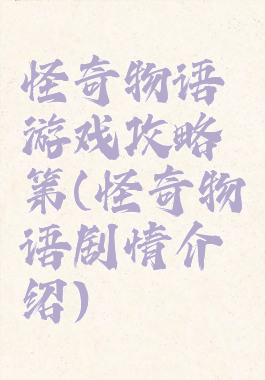 怪奇物语
游戏攻略
第(怪奇物
语剧情介
绍)